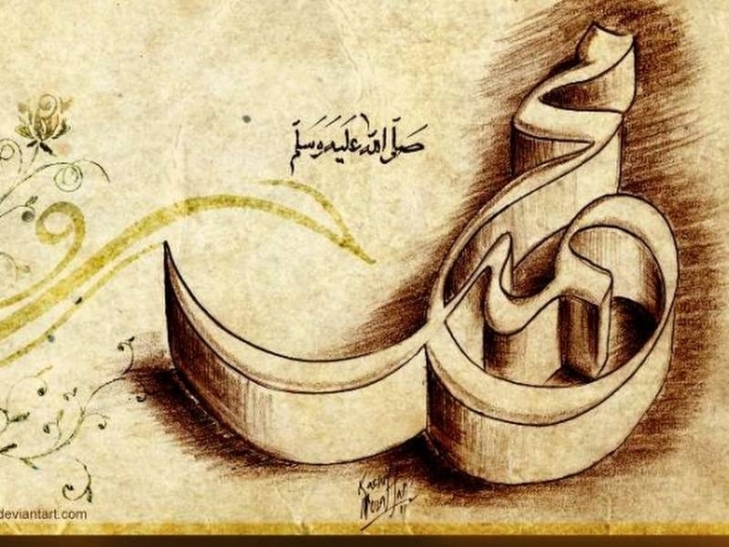 محمد
صَلَّى اللّٰه عَلَيْهِ وَسَلَّم
Kashif
deviantart.com